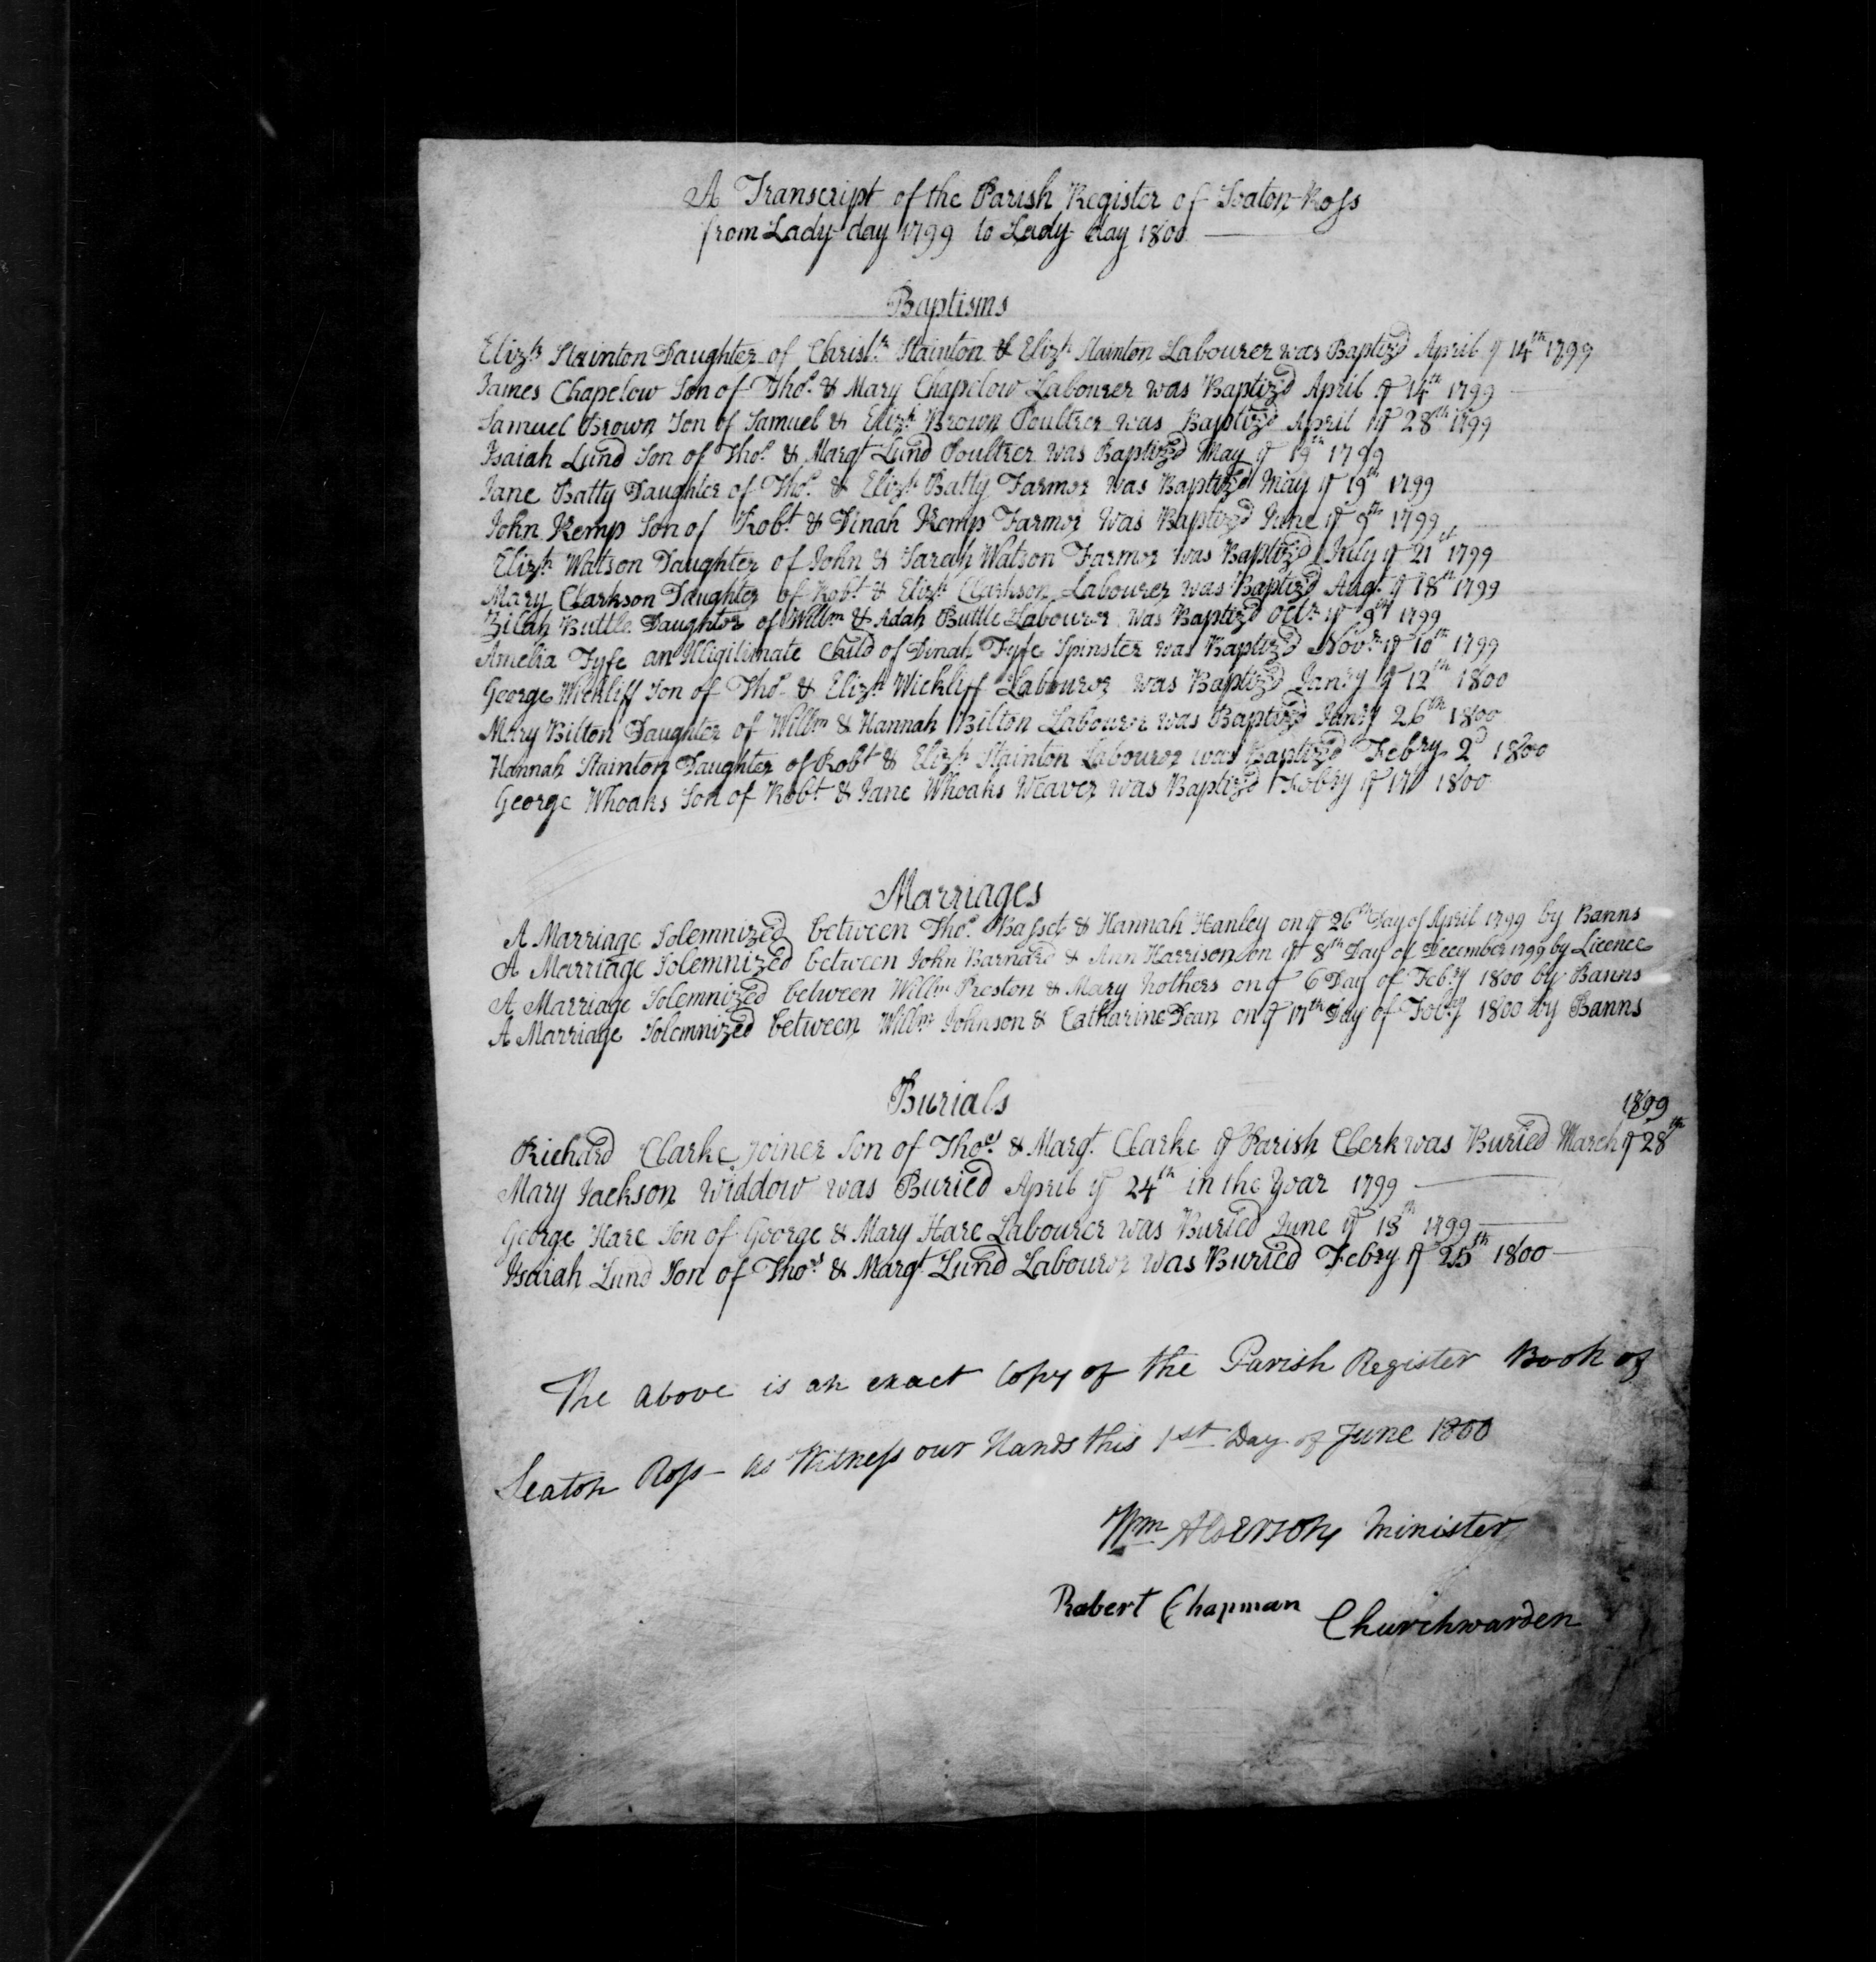 A Transcript of the Parish Register of Seaton-Ross
from Lady-day 1799 to Lady-day 1800
Baptisms
Elizth Stainton Daughter of Christr Stainton & Elizth Stainton Labourer was Baptiz'd April ye 14th 1799
James Chapelow Son of Thos & Mary Chapelow Labourer was Baptiz'd April ye 14th 1799
Samuel Brown Son of Samuel & Elizh Brown Poultrer was Baptiz'd April ye 28th 1799
Isaiah Lund Son of Thos & Margt Lund Poultrer was Baptized May ye 19th 1799
Jane Batty Daughter of Thos & Elizth Batty Farmor was Baptized May ye 19th 1799
John Kemp Son of Robt & Dinah Kemp Farmor was Baptized June ye 9th 1799
Elizth Watson Daughter of John & Sarah Watson Farmor was Baptized July ye 21st 1799
Mary Clarkson Daughter of Robt & Elizth Clarkson Labourer was Baptized Augt ye 18th 1799
Zilah Buttle Daughter of Willm & Adah Buttle Labourer was Baptiz'd Octr ye 9th 1799
Amelia Fyfe an Illigitimate Child of Dinah Fyfe Spinster was Baptiz'd Novr ye 10th 1799
George Wickliff Son of Thos & Elizth Wickliff Labouror was Baptiz'd Janry ye 12th 1800
Mary Bilton Daughter of Willm & Hannah Bilton Labouror was Baptiz'd Janry 26th 1800
Hannah Stainton Daughter of Robt & Elizth Stainton Labouror was Baptized Febry 2d 1800
George Whoaks Son of Robt & Jane Whoaks Weaver was Baptiz'd Febry ye 17th 1800
Marriages
A Marriage Solemnized between Thos Basset & Hannah Hanley on ye 26th Day of April 1799 by Banns
A Marriage Solemnized between John Barnard & Ann Harrison on ye 8th Day of December 1799 by Licence
A Marriage Solemnized between Willm Preston & Mary Nothers on ye 6 Day of Febry 1800 by Banns
A Marriage Solemnized between Willm Johnson & Catharine Dean on ye 17th Day of Febry 1800 by Banns
Burials
1899
Richard Clarke Joiner Son of Thos & Margt Clarke ye Parish Clerk was Buried March ye 28th
Mary Jackson Widdow was Buried April ye 24th in the Year 1799
George Hare Son of George & Mary Hare Labourer was Buried June ye 13th 1799
Isaiah Lund Son of Thos & Margt Lund Labouror was Buried Febry ye 25th 1800
The above is an exact Copy of the Parish Register Book of
Seaton Ross - As Witness our Hands this 1st Day of June 1800
Wm Alderson Minister
Robert Chapman Churchwarden